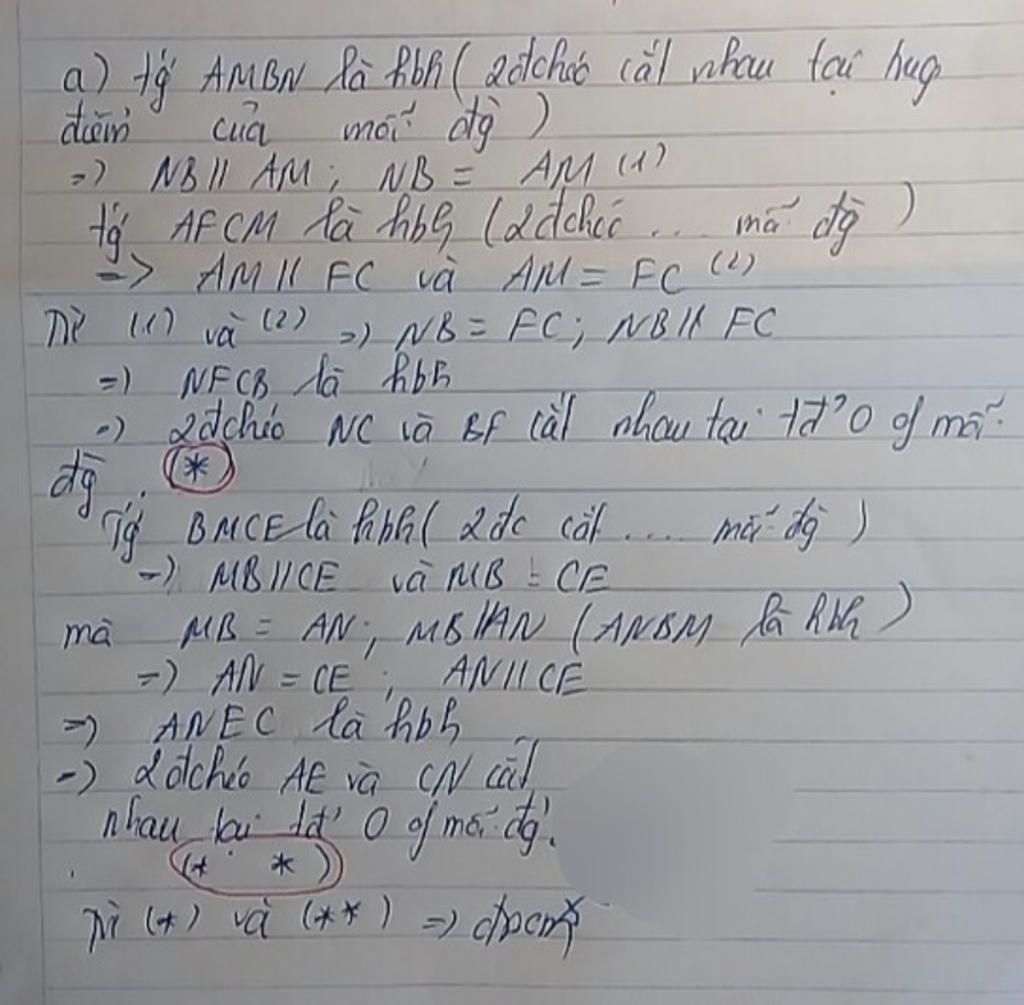 a) tg AMBN là hbh ( 2 đchéo cắt nhau tại trung
điểm của mỗi đg )
=) NB // AM ; NB = AM (1)
tg AFCM là hbh ( 2 đchéo ... mỗi đg )
=> AM // FC và AM = FC (2)
Từ (1) và (2) =) NB = FC ; NB // FC
=) NFCB là hbh
=) 2 đchéo NC và BF cắt nhau tại tđ' O of mỗi
đg . (*)
Tg BMCE là hbh ( 2 đc cắt .... mỗi đg )
=) MB // CE và MB = CE
mà MB = AN ; MB // AN ( ANBM là hbh )
=) AN = CE ; AN // CE
=) ANEC là hbh
=) 2 đchéo AE và CN cắt
nhau tại tđ' O of mỗi đg .
(* *)
Từ (*) và (**) =) đpcm